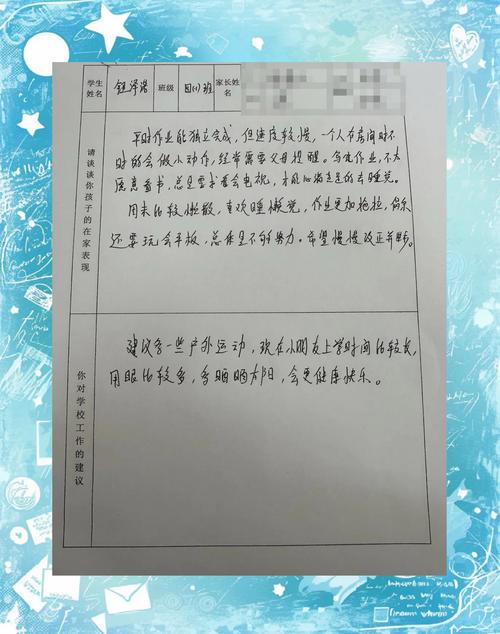 学生姓名 钮泽浩 班级 四(1)班 家长姓名
请谈谈你孩子的在家表现
平时作业能独立完成，但速度较慢，一个人在房间时不
时的会做小动作，经常需要父母提醒。写完作业，不太
愿意看书，总是要求看会电视，才能心满意足的去睡觉。
周末比较懒散，喜欢睡懒觉，作业更加拖拉，偷乐
还要玩会平板，总体是不够努力。希望慢慢改正并进步。
你对学校工作的建议
建议多一些户外运动，现在小朋友上学时间比较长，
用眼比较多，多晒晒太阳，会更健康快乐。